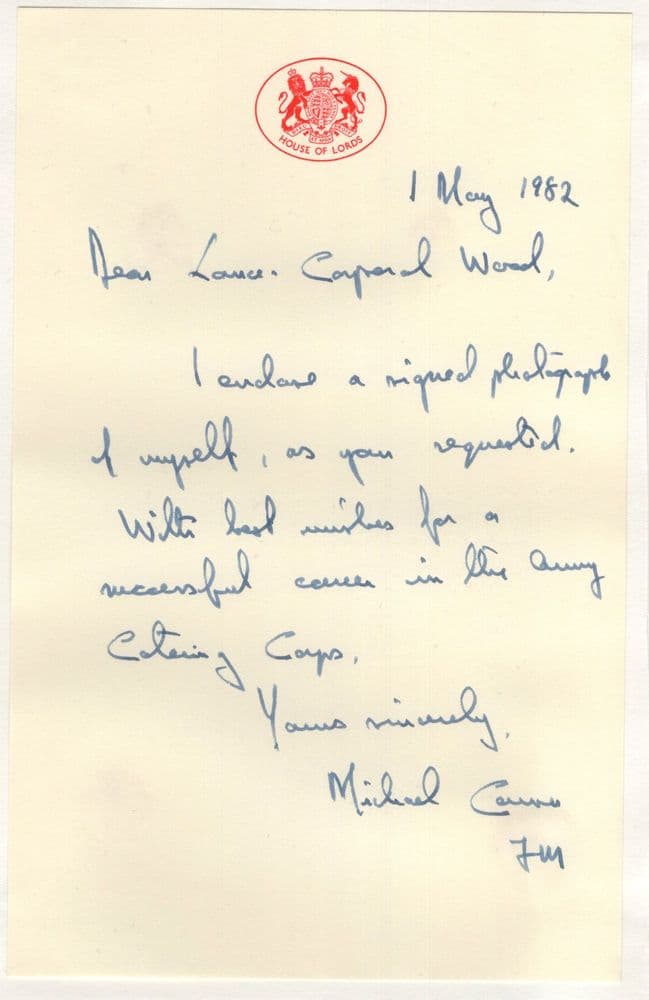 HOUSE OF LORDS
1 May 1982
Dear Lance-Corporal Wood,
I enclose a signed photograph
of myself, as you requested.
With best wishes for a
successful career in the Army
Catering Corps.
Yours sincerely,
Michael Carver
FM